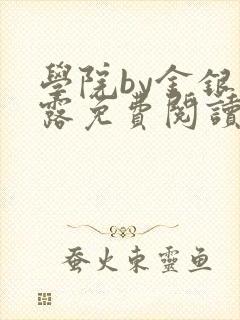 學院by金銀
露免費閱讀
蚕火東靈鱼